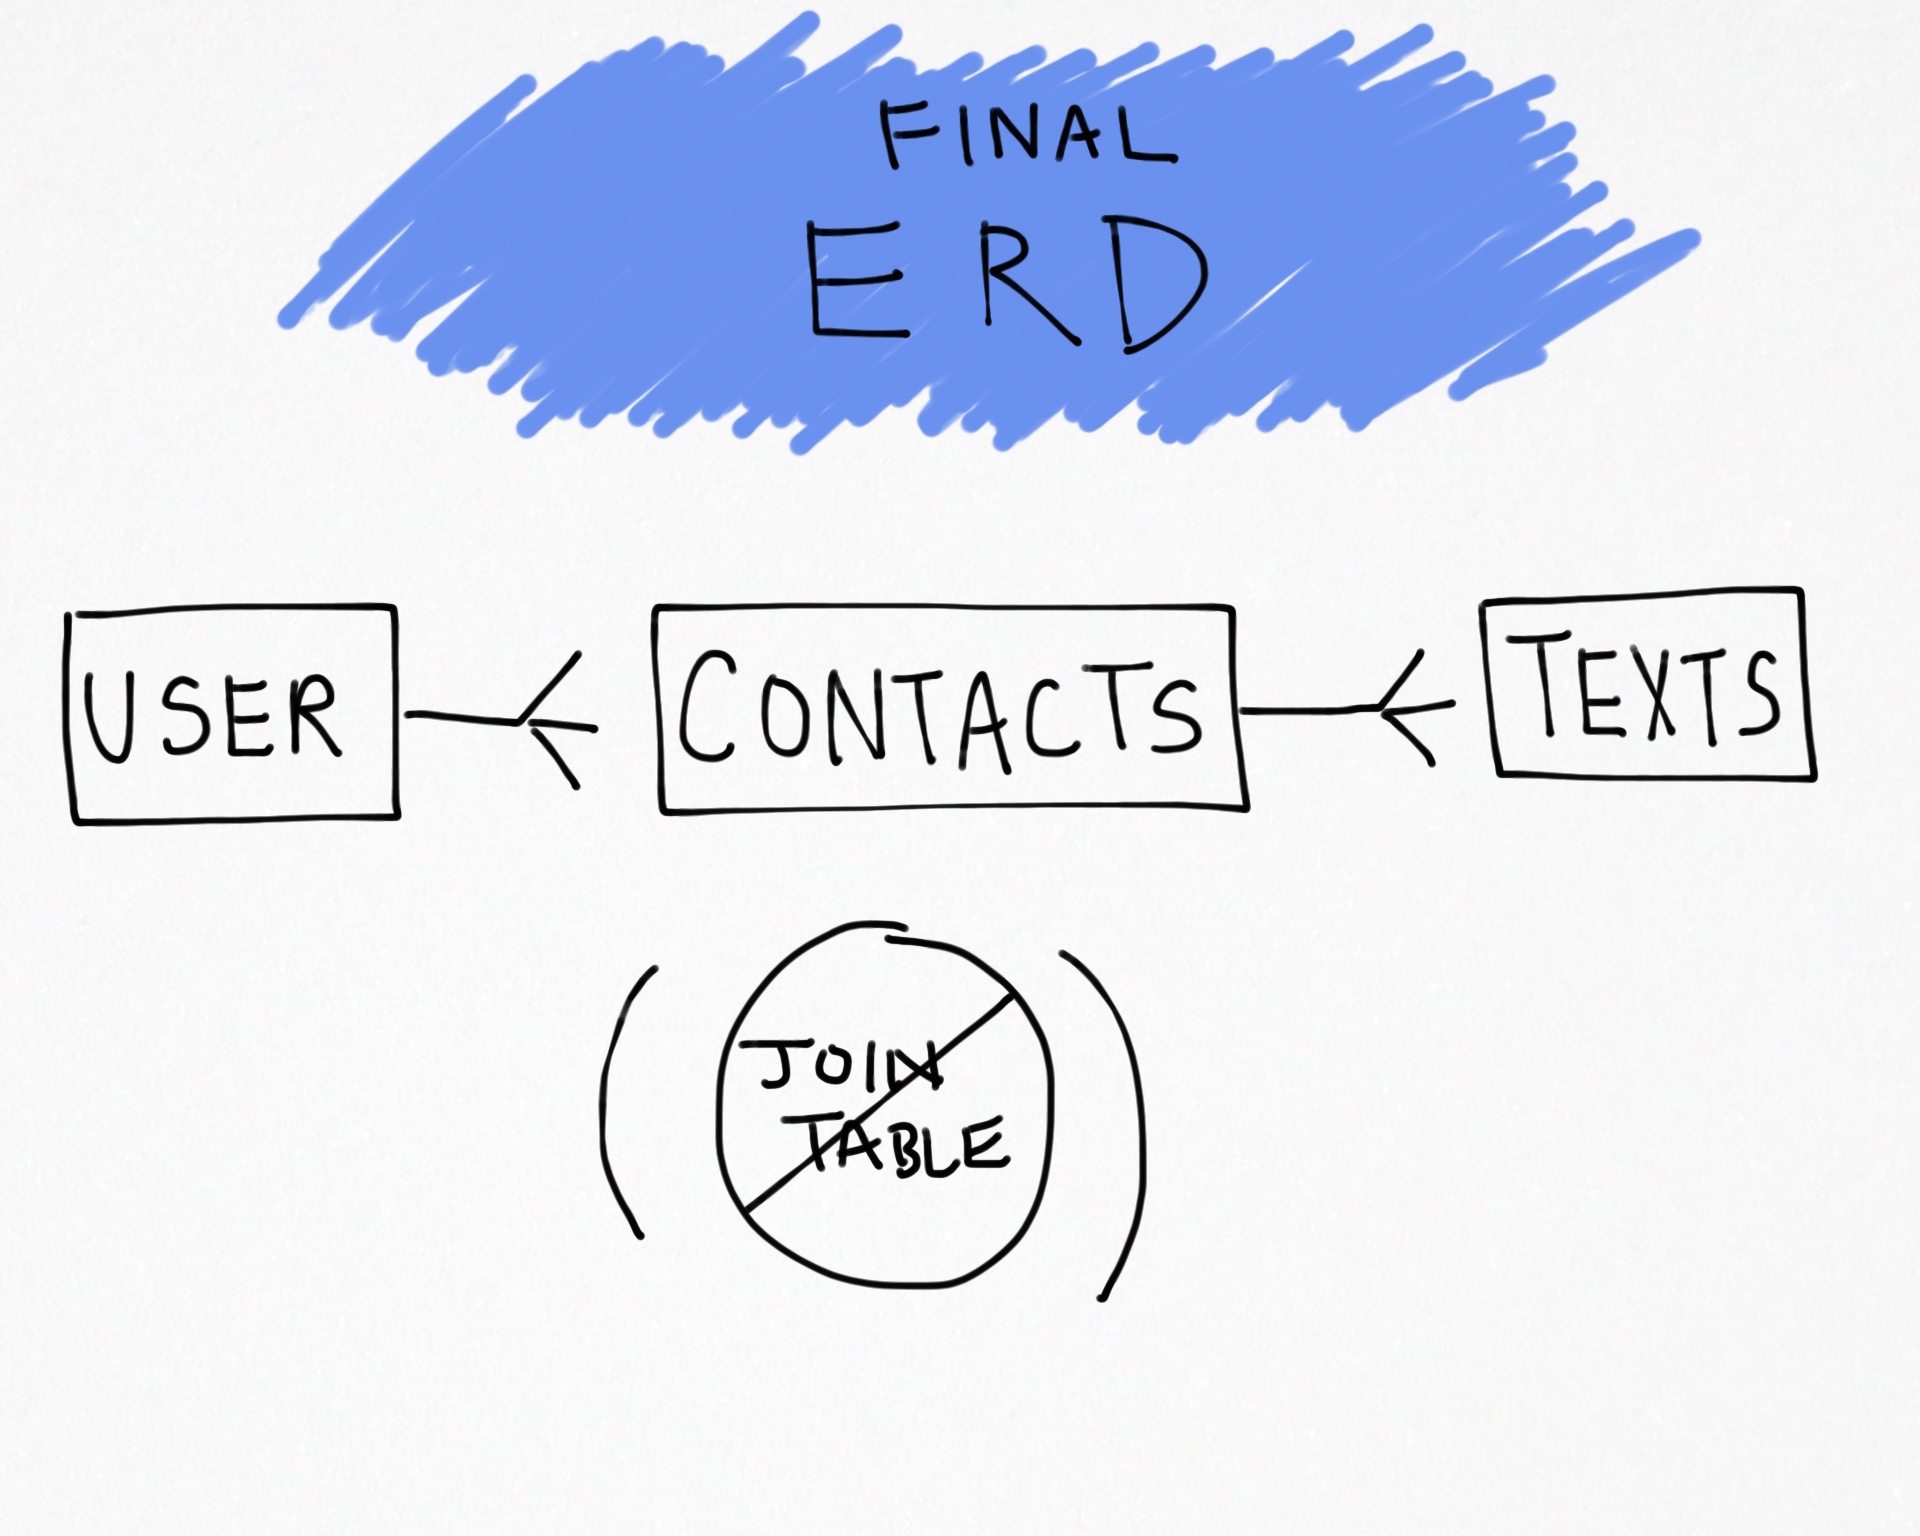 FINAL
ERD
USER
CONTACTS
TEXTS
JOIN
TABLE